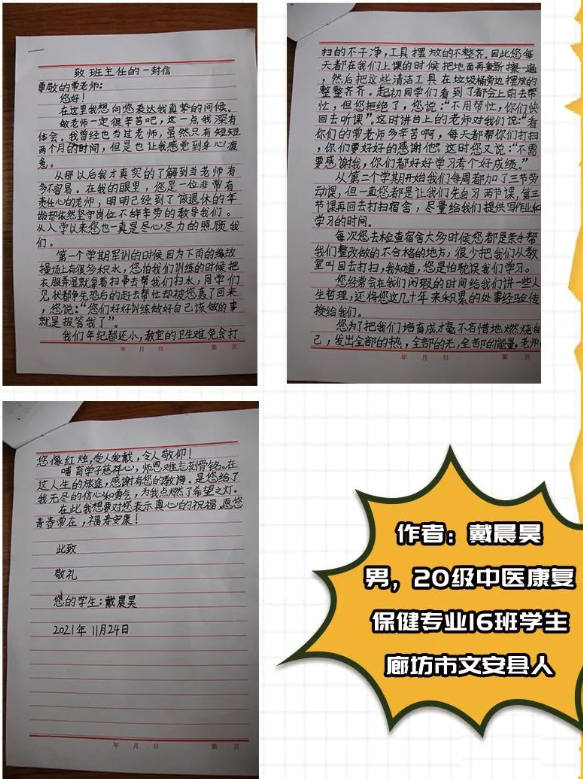 致班主任的一封信
尊敬的常老师:
您好!
在这里我想向您表达我真挚的问候。
做老师一定很辛苦吧,这一点我深有
体会,我曾经也当过老师,虽然只有短短
两个月的时间,但是也让我感觉到身心疲
惫。
从那以后我才真实的了解到当老师有
多不容易。在我的眼里,您是一位非常有
责任心的老师,明明已经到了该退休的年
龄却依然坚守岗位不辞辛劳的教导我们。
从入学以来您也一直是尽心尽力的照顾我
们。
第一个学期军训的时候因为下雨的缘故
操场上有很多积水,您怕我们训练的时候把
衣服弄湿就拿着扫帚去帮我们扫水,同学们
见状都争先恐后的赶去帮忙却被您轰了回来
,您说:“你们好好训练做好自己该做的事
就是报答我了”。
我们年纪都还小,教室的卫生难免会打
年 月 日 第 页
扫的不干净,工具摆放的不整齐。因此您每
天都在我们上课的时候把地面再重新擦一遍
,然后把这些清洁工具在垃圾桶旁边摆放的
整整齐齐。起初同学们看到了都会上前去帮
忙,但您拒绝了,您说:“不用帮忙,你们快
回去听课”。这时讲台上的老师对我们说:“看
你们的常老师多辛苦啊,每天都帮你们打扫
,你们要好好的感谢他”这时您又说:“不需
要感谢我,你们都好好学习考个好成绩。”
从第二个学期开始我们每周都加了三节劳
动课,但一直您都是让我们先自习两节课,第三
节课再回去打扫宿舍,尽量给我们提供写作业和
学习的时间。
每次您去检查宿舍大多时候您都是亲手帮
我们整改做的不合格的地方,很少把我们从教
室叫回去打扫,我知道,您是怕耽误我们学习。
您经常会在我们闲暇的时间给我们讲一些人
生哲理,还将您这几十年来积累的处事经验传
授给我们。
您为了把我们培育成才毫不吝惜地燃烧自
己,发出全部的热,全部的光,全部的能量。老师
年 月 日 第 页
您像红烛,受人爱戴,令人敬仰!
哺育学子慈祥心,师恩难忘刻骨铭。在
这人生的旅途,感谢有您的教诲。是您给了
我无尽的信心和勇气,为我点燃了希望之灯。
在此我想要对您表示真心的祝福,愿您
青春常在,福寿安康!
此致
敬礼
您的学生:戴晨昊
2021年11月24日
年 月 日 第 页
作者:戴晨昊
男,20级中医康复
保健专业16班学生
廊坊市文安县人